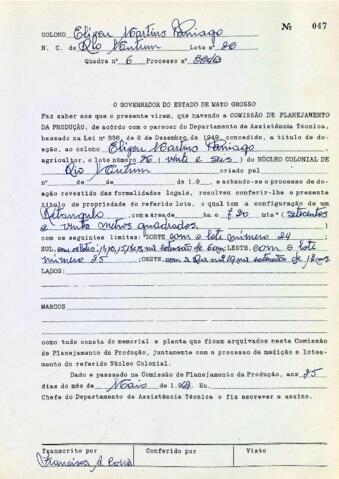 Nº 047
COLONO Elizeu Martins Paniago
N. C. do Rio Mutum Lote nº 26
Quadra nº 6 Processo nº
O GOVERNADOR DO ESTADO DE MATO GROSSO
Faz saber aos que o presente virem, que havendo a COMISSÃO DE PLANEJAMENTO
DA PRODUÇÃO, de acôrdo com o parecer do Departamento de Assistência Técnica,
baseado na Lei nº 336, de 6 de Dezembro de 1949, concedido, a título de do-
ação, ao colono Elizeu Martins Paniago
agricultor, o lote número 26 (vinte e seis) do NÚCLEO COLONIAL DE
Rio Mutum criado pel
nº de de de 1.9 , e achando-se o processo de do-
ação revestido das formalidades legais, resolveu conferir-lhe o presente
título de propriedade do referido lote, o qual tem a configuração de um
Retangulo com a área de ha. e 720 mts² (setecentos
e vinte metros quadrados.)
com os seguintes limites: NORTE com o lote número 24
SUL, com os lotes: na extensão de 60m; LESTE, com o lote
número 25 ;OESTE, com a Rua nº 19 na extensão de 12 ms.
LADOS:
MARCOS
como tudo consta do memorial e planta que ficam arquivados nesta Comissão
de Planejamento da Produção, juntamente com o processo de medição e loteamen-
to do referido Núcleo Colonial.
Dado e passado na Comissão de Planejamento da Produção, aos 25
dias do mês de Maio de 1.9 Eu,
Chefe do Departamento de Assistência Técnica o fiz escrever e assino.
Transcrito por Conferido por Visto
Francisca